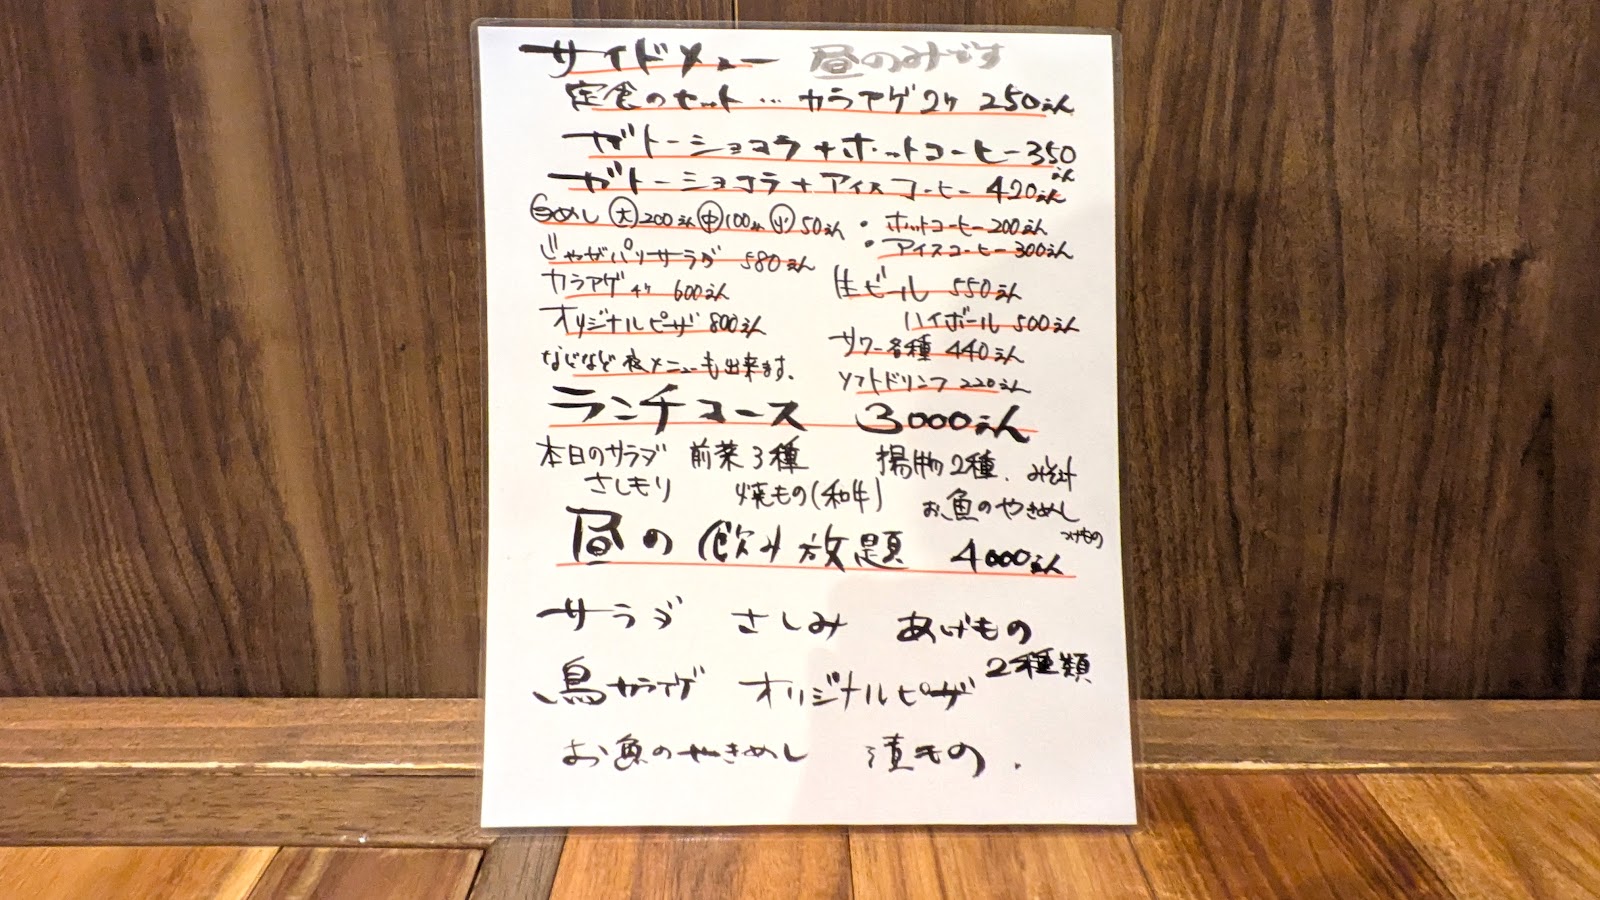 サイドメニュー 昼のみです
定食のセット…カラアゲ2ケ 250えん
ガトーショコラ+ホットコーヒー350えん
ガトーショコラ+アイスコーヒー 420えん
白めし 大200えん 中100えん 小50えん
・ホットコーヒー200えん
・アイスコーヒー300えん
じゃがパリサラダ 580えん
カラアゲ4ケ 600えん
オリジナルピーザ 800えん
などなど夜メニューも出来ます。
生ビール 550えん
ハイボール 500えん
サワー各種 440えん
ソフトドリンク 220えん
ランチコース 3000えん
本日のサラダ 前菜3種 揚物2種、みそ汁
さしもり 焼もの(和牛) お魚のやきめし
つけもの
昼の飲み放題 4000えん
サラダ さしみ あげもの
2種類
鳥カラアゲ オリジナルピーザ
お魚のやきめし 漬もの.